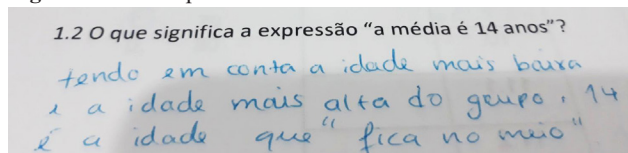 1.2 O que significa a expressão “a média é 14 anos”?
tendo em conta a idade mais baixa
e a idade mais alta do grupo, 14
é a idade que "fica no meio"